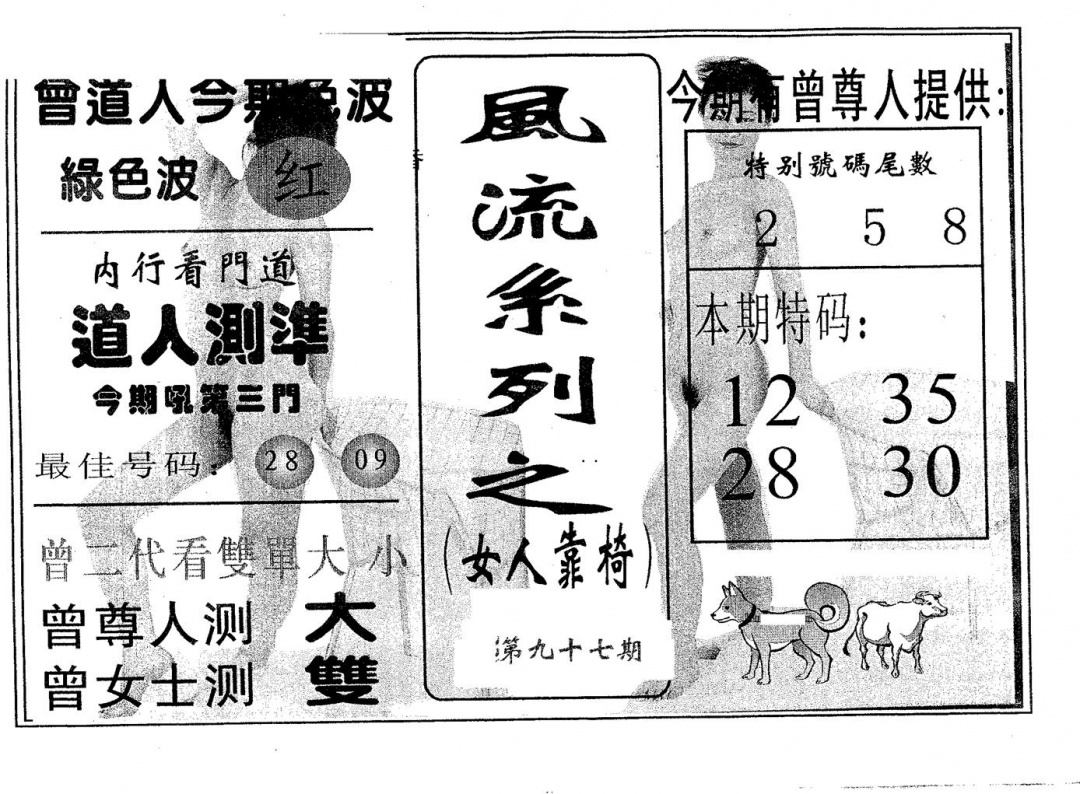 曾道人今期色波
綠色波 红
内行看門道
道人測準
今期吼第三門
最佳号码： 28 09
曾二代看雙單大小
曾尊人测 大
曾女士测 雙
風流系列之
(女人靠椅)
第九十七期
今期有曾尊人提供:
特别號碼尾數
2 5 8
本期特码：
12 35
28 30